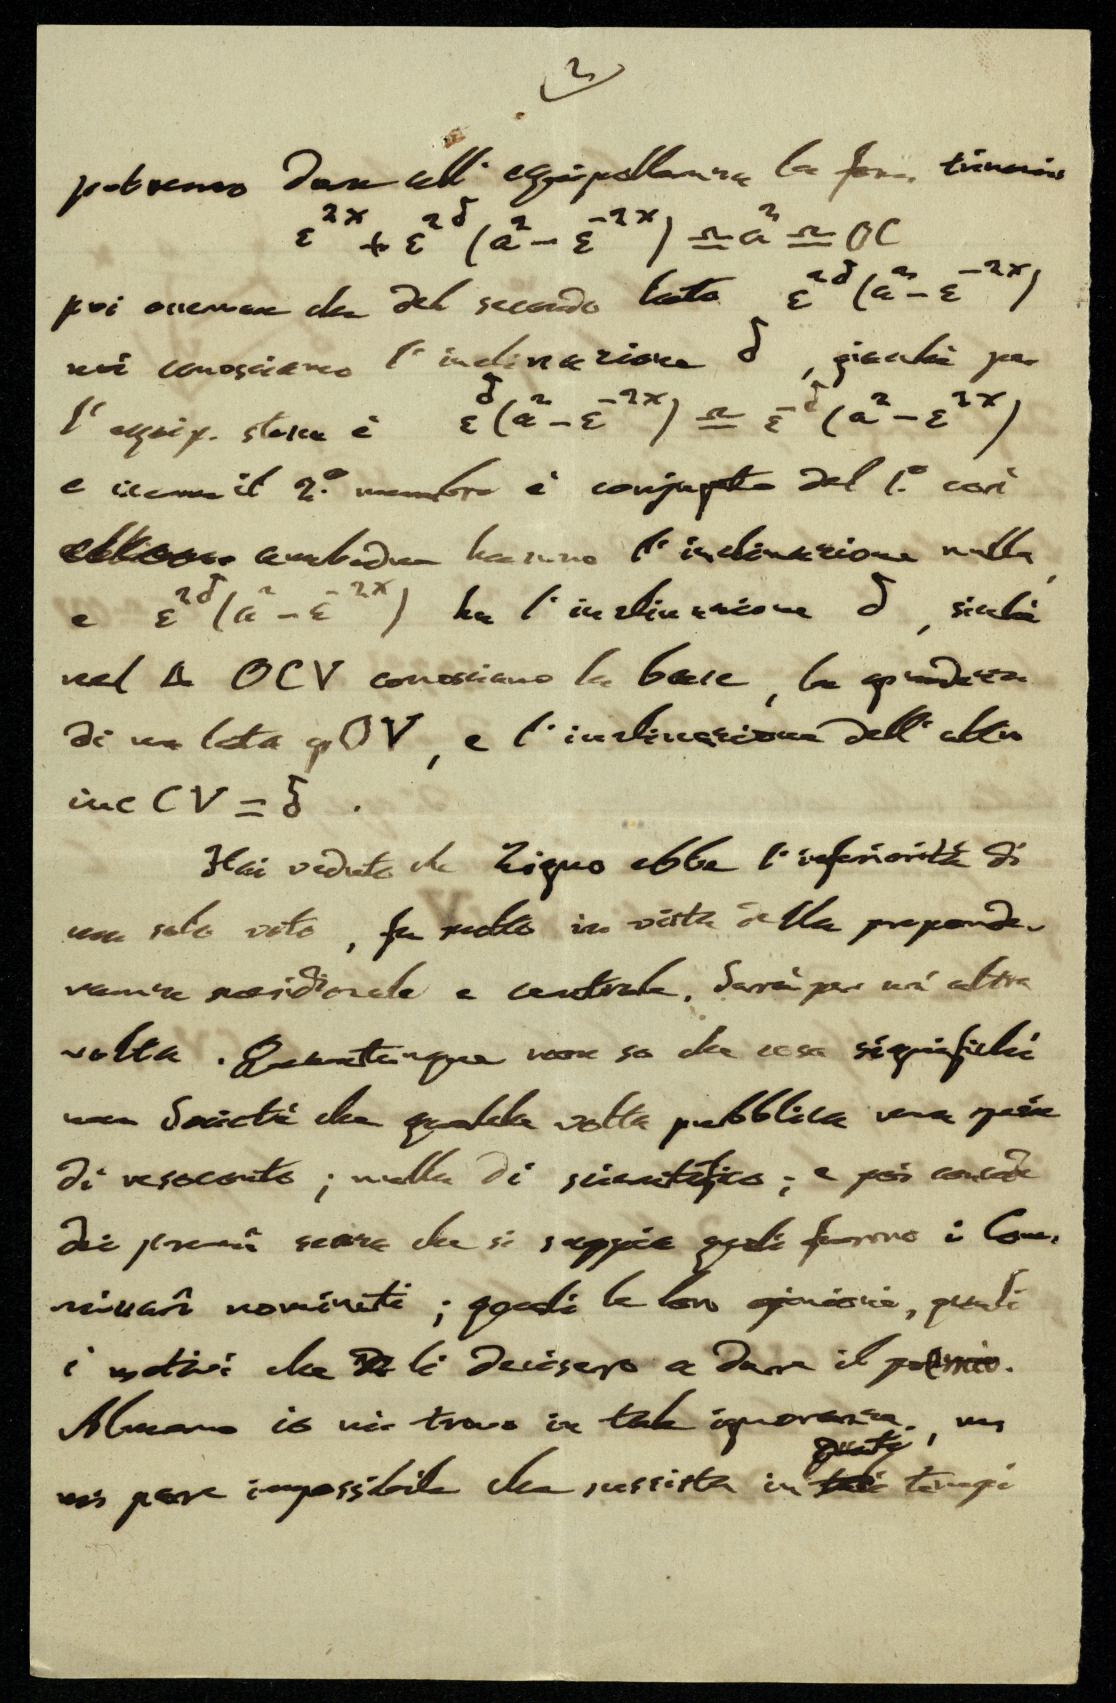 2
potremo dare all' equipollenza la form. trinomia
ε^{2x} + ε^{2δ} (a² − ε^{−2x}) ≏ a² ≏ OC
poi osservare che del secondo lato ε^{2δ}(a² − ε^{−2x})
noi conosciamo l'inclinazione δ, giacchè per
l'equip. stessa è ε^{δ}(a² − ε^{−2x}) ≏ ε^{−δ}(a² − ε^{2x})
e siccome il 2.° membro è conjugato del 1.° così
ambedue hanno l'inclinazione nulla,
e ε^{2δ}(a² − ε^{−2x}) ha l'inclinazione δ, sicchè
nel Δ OCV conosciamo la base, la grandezza
di un lato gr OV, e l'inclinazione dell'altro
inc CV = δ.
Hai veduto che Zigno ebbe l'inferiorità di
un solo voto, fu molto in vista della preponde-
ranza meridionale e centrale. Sarà per un'altra
volta. Quantunque non so che cosa significhi
una Società che qualche volta pubblica una specie
di resoconto; nulla di scientifico; e poi concede
dei premii senza che si sappia quali furono i Com-
missarî nominati; quali le loro opinioni, quali
i motivi che li decisero a dare il premio.
Almeno io mi trovo in tale ignoranza, ma
mi pare impossibile che sussista in questi tempi